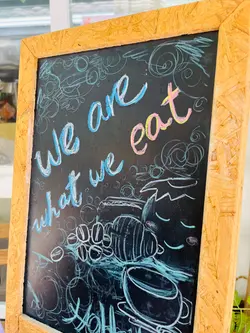 We are
what we eat